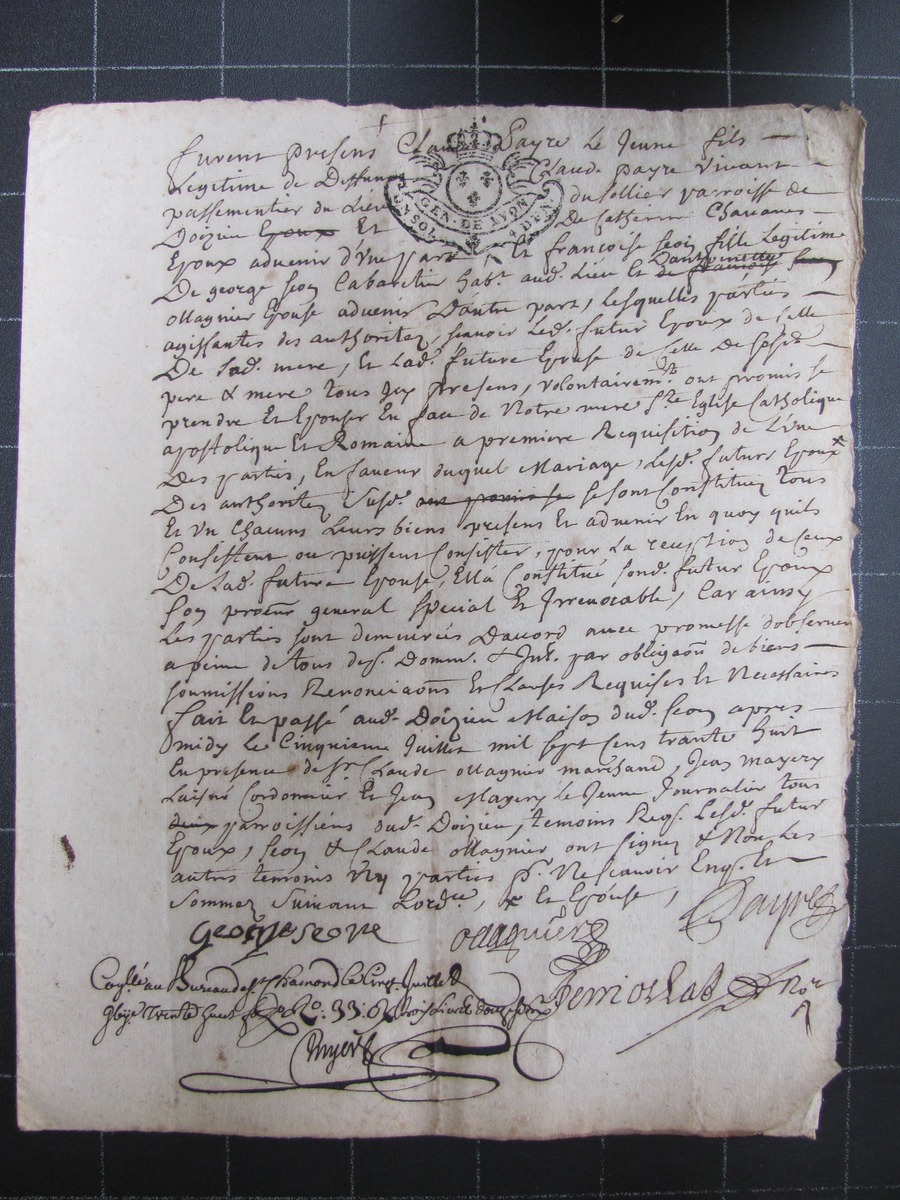 furent presens Claude Payre Le Jeune fils
Legitime de Deffunt Claud. payre vivant
passementier du Lieu du Sollier parroisse de
Doizieu Epoux Et De Catherine Chavanes
GEN. DE LYON
Epoux advenir d'une part, Et francoise seon fille Legitime
De george seon Cabaretier habt. aud. Lieu Et de francoise D'antoinette
Magnier Epouse advenir D'autre part, Lesquelles parties
agissantes des authoritez scavoir Led. futur Epoux de Celle
De sad. mere, Et Lad. future Epouse de Celle De sesd.
pere & mere tous Icy presens, volontairemt. ont promis se
prendre Et Epouser En face de Notre mere Ste. Eglise Catholique
apostolique Et Romaine a premiere Requisition de L'une
Des parties, En faveur duquel Mariage, Lesd. futurs Epoux
Des authoritez susd. ont promis se se sont Constituez tous
Et un Chacuns Leurs biens presens Et advenir En quoy quils
Consistent ou puissent Consister, pour La reception de Ceux
De Lad. future Epouse, Ella Constitué sond. futur Epoux
son procur general special Et Irrevocable, Car ainsy
Les parties sont demeurées D'accord avec promesse d'observer
a peine de tous des. Domm. & Int. par obligaon de biens
soumissions Renonciaons Et Clauses Requises Et Necessaires
fait Et passé aud. Doizieu Maison dud. seon apres
midy Le Cinquieme Juillet mil sept Cens trante huit
En presence de sr. Claude Magnier marchand, Jean mayery
Laisné Cordonnier Et Jean Mayery le Jeune Journalier tous
deux parroissiens dud. Doizieu, temoins Reqs. Lesd. futur
Epoux, seon & Claude Magnier ont signez & Non Les
autres temoins Ny parties pr. Ne scavoir Enqs. Et
sommez suivant L'ordce, x Et Epouse,
George seone Magnier Payre
Coņllé au Bureau de St Chamond le Cinq Juillet
trente huit fo. Ro. 33. trois Livres douze sols